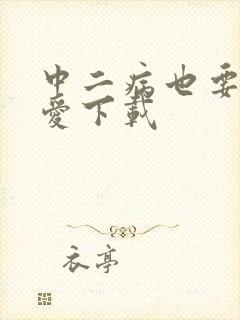 中二病也要
愛下載
衣亭